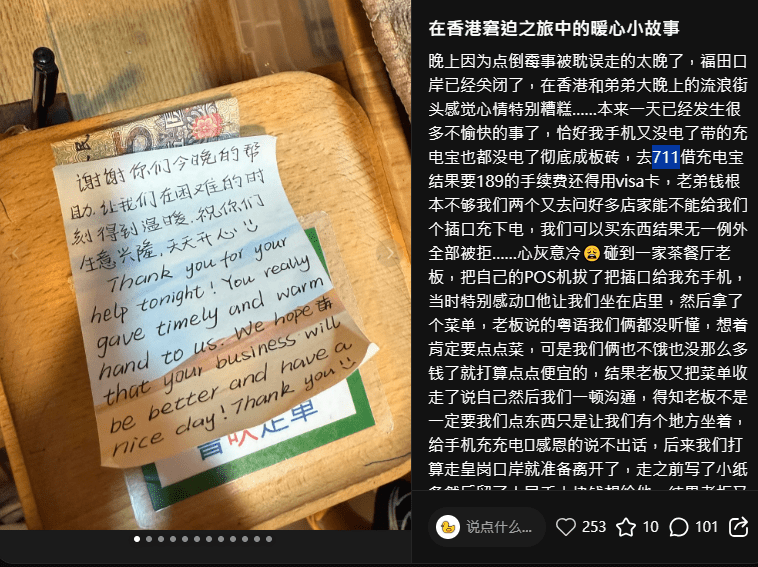 谢谢你们今晚的帮
助.让我们在困难的时
刻得到温暖.祝你们
生意兴隆.天天开心
Thank you for your
help tonight! You really
gave timely and warm
hand to us. We hope
that your business will
be better and have a
nice day! Thank you
在香港窘迫之旅中的暖心小故事
晚上因为点倒霉事被耽误走的太晚了，福田口
岸已经关闭了，在香港和弟弟大晚上的流浪街
头感觉心情特别糟糕......本来一天已经发生很
多不愉快的事了，恰好我手机又没电了带的充
电宝也都没电了彻底成板砖，去711借充电宝
结果要189的手续费还得用visa卡，老弟钱根
本不够我们两个又去问好多店家能不能给我们
个插口充下电，我们可以买东西结果无一例外
全部被拒......心灰意冷😩碰到一家茶餐厅老
板，把自己的POS机拔了把插口给我充手机，
当时特别感动他让我们坐在店里，然后拿了
个菜单，老板说的粤语我们俩都没听懂，想着
肯定要点点菜，可是我们俩也不饿也没那么多
钱了就打算点点便宜的，结果老板又把菜单收
走了说自己然后我们一顿沟通，得知老板不是
一定要我们点东西只是让我们有个地方坐着，
给手机充充电感恩的说不出话，后来我们打
算走皇岗口岸就准备离开了，走之前写了小纸
说点什么...
253
10
101